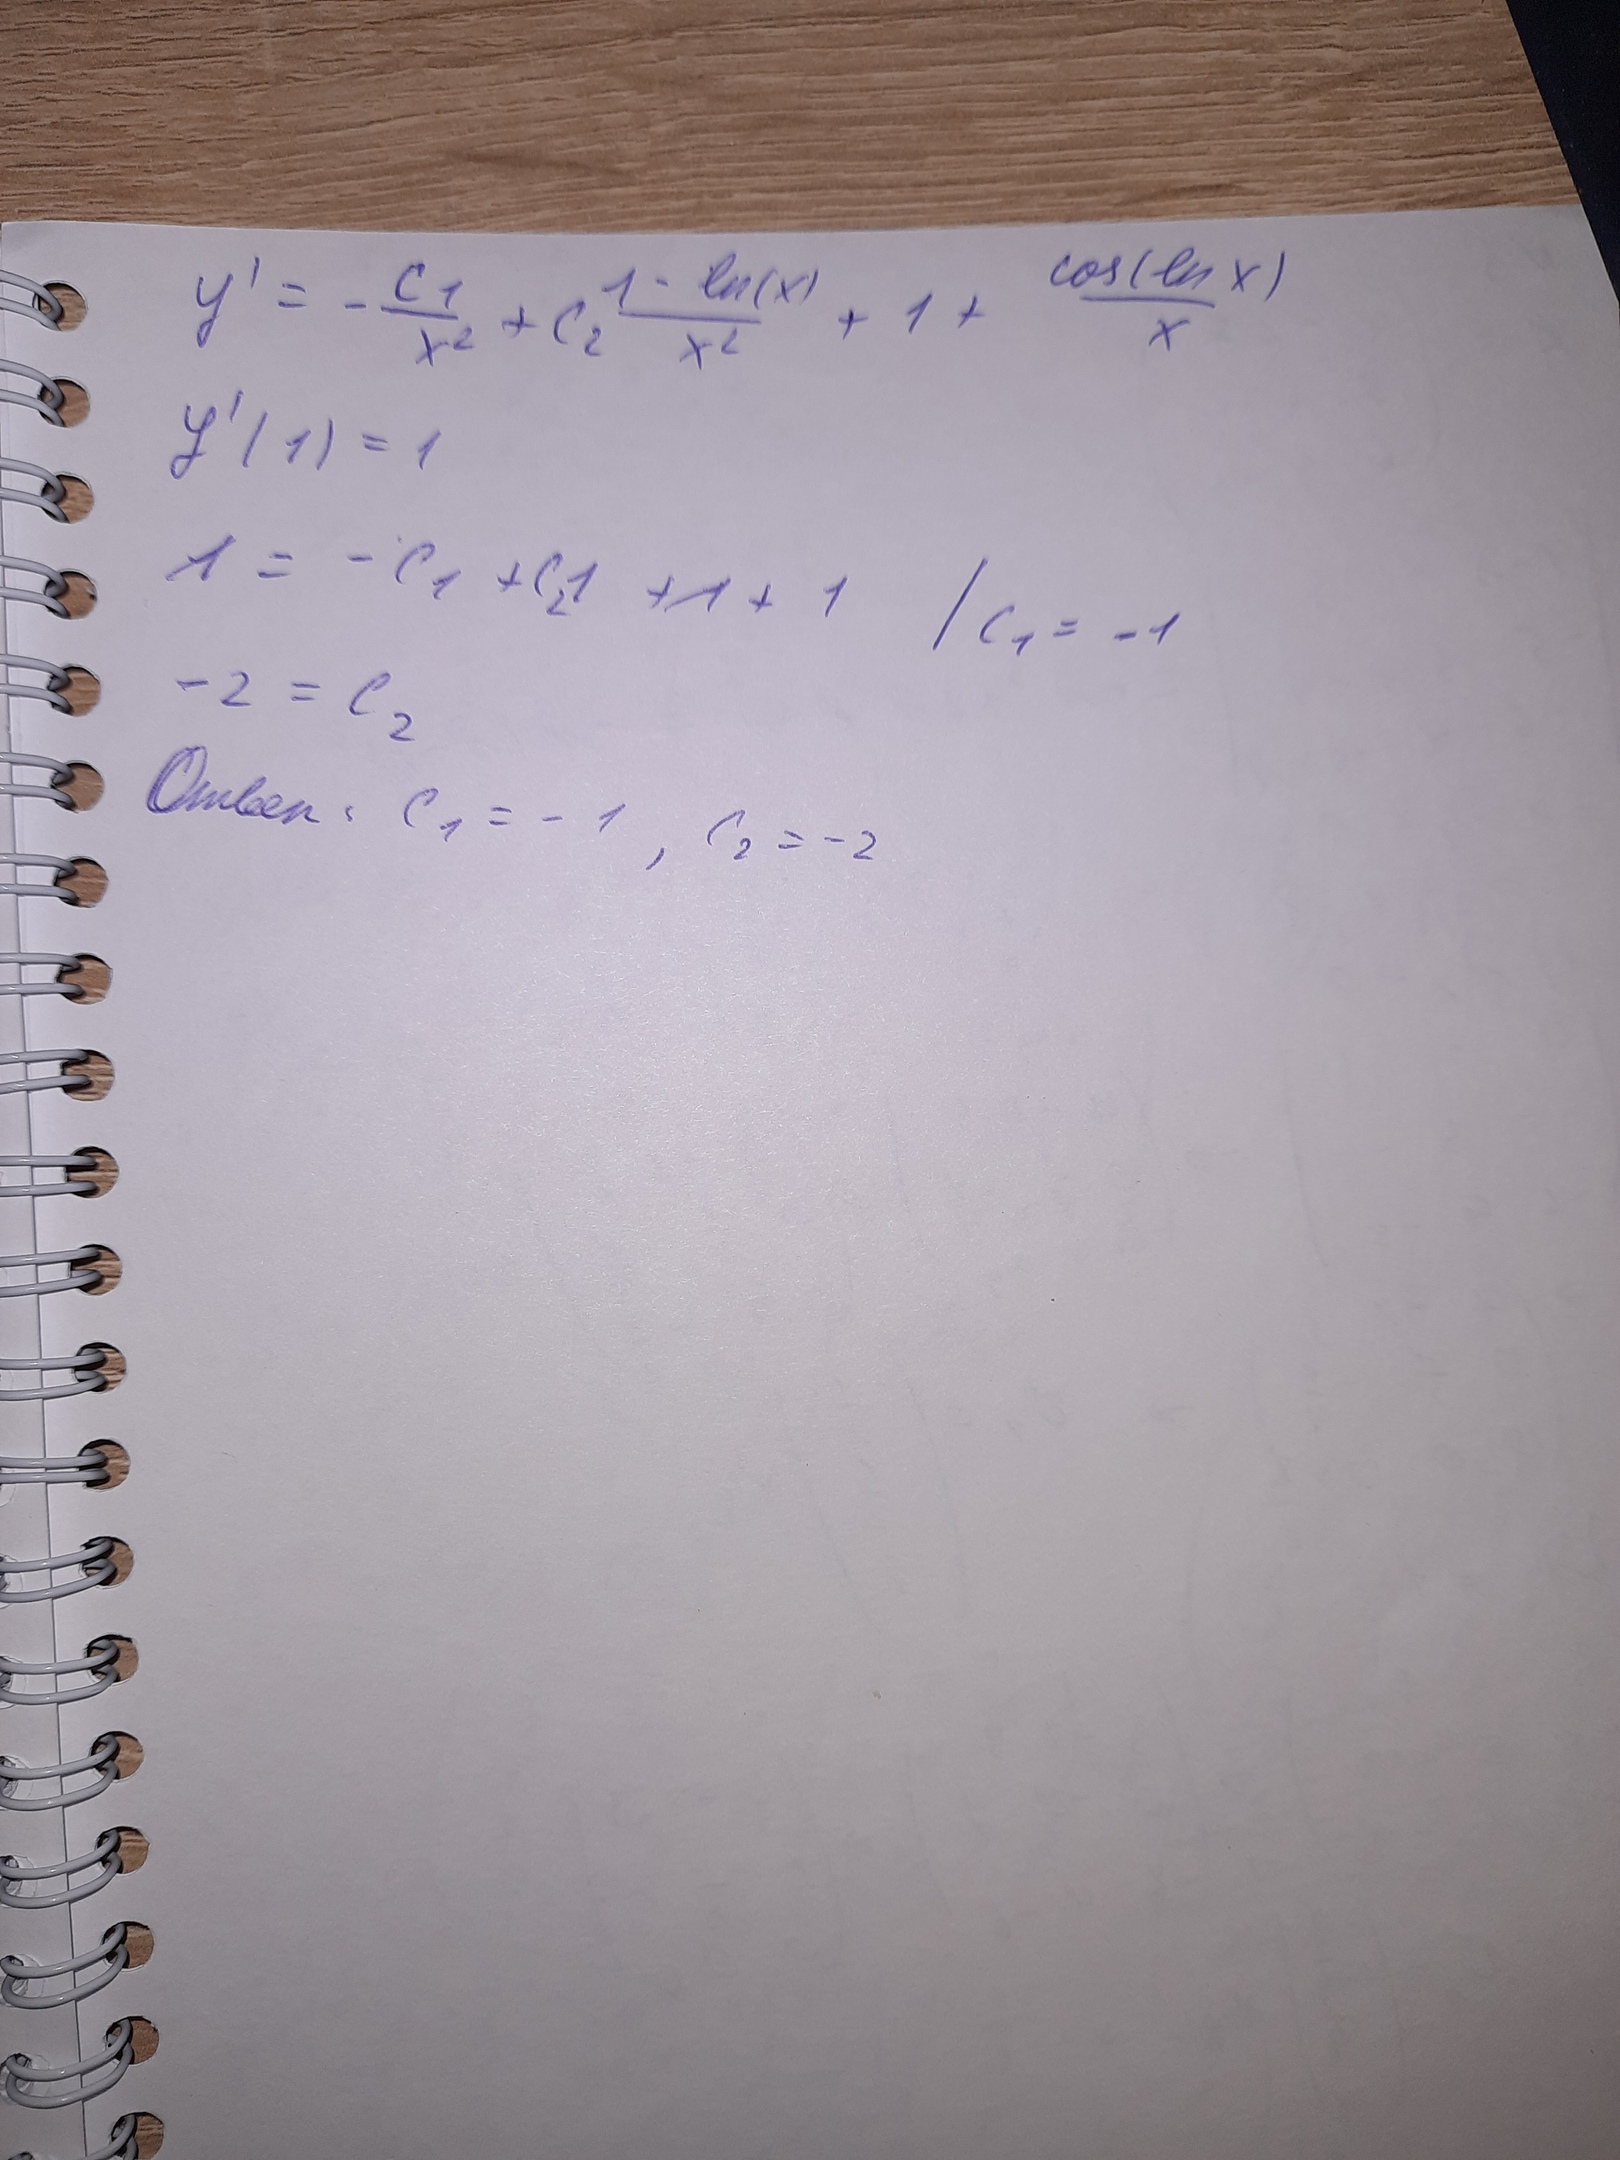 y' = - C₁/x² + C₂ (1 - ln(x))/x² + 1 + cos(ln x)/x
y'(1) = 1
1 = - C₁ + C₂1 + 1 + 1 / C₁ = -1
-2 = C₂
Ответ: C₁ = -1, C₂ = -2